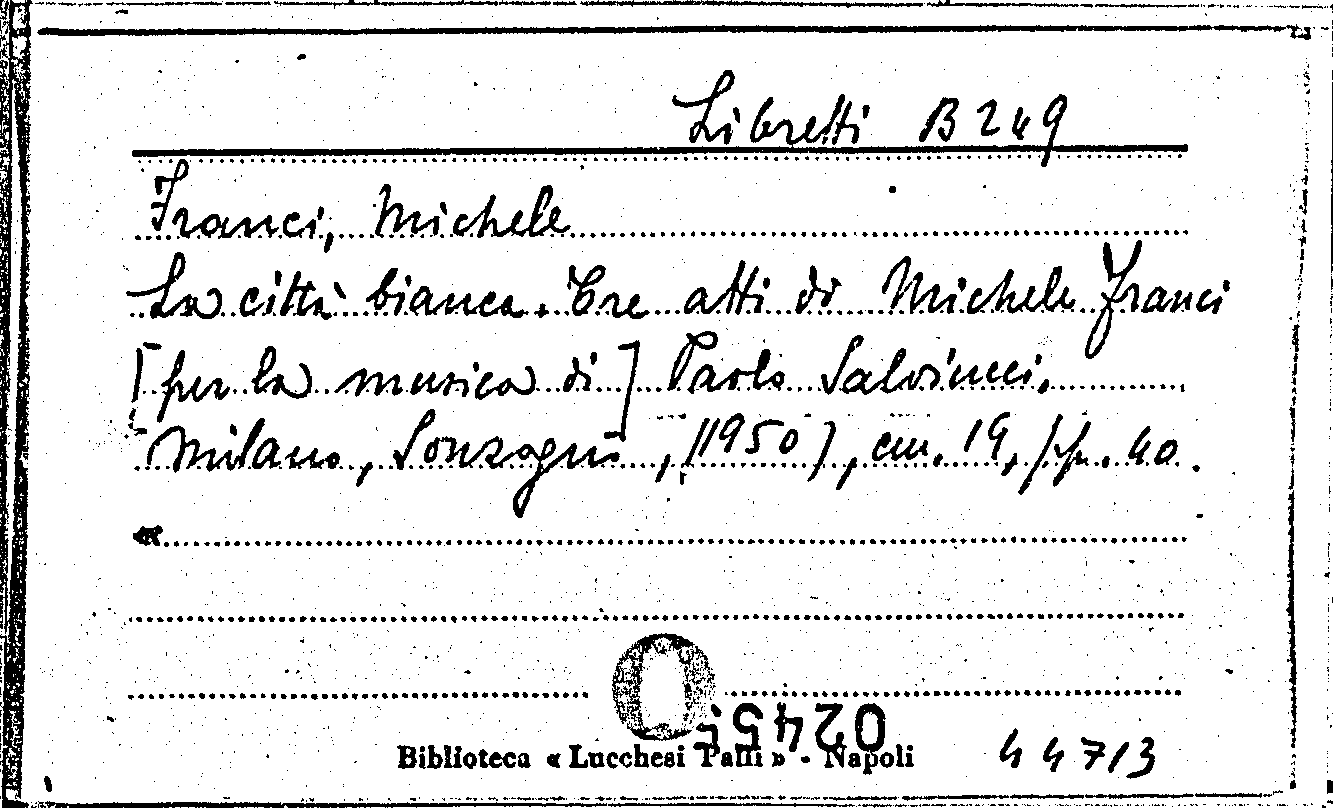 Libretti B 249
Franci, Michele
La città bianca. Tre atti di Michele Franci
[per la musica di] Paolo Salviucci.
Milano, Sonzogno, [1950], cm. 19, pp. 40.
Biblioteca « Lucchesi Palli » - Napoli
44713